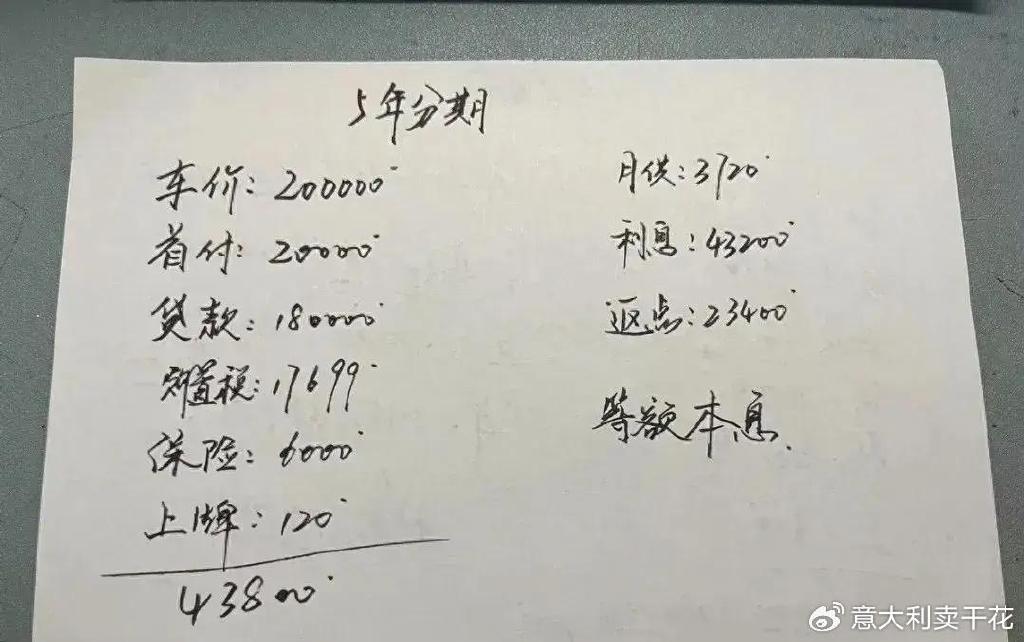 5年分期
车价: 200000
首付: 20000
贷款: 180000
购置税: 17699
保险: 6000
上牌: 120
43800
月供: 3720
利息: 43200
返点: 23400
等额本息.
意大利卖干花